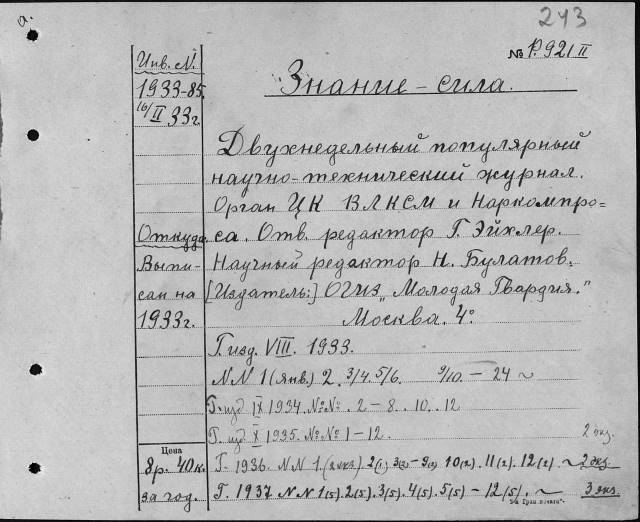 а.
243
№ Р.921 II
Инв. №.
1933-85.
16/II 33 г.
Знание – сила.
Двухнедельный популярный
научно-технический журнал.
Орган ЦК ВЛКСМ и Наркомпро=
са. Отв. редактор Г. Эйхлер.
Научный редактор Н. Булатов.
[Издатель:] ОГИЗ „Молодая Гвардия."
Москва. 4°.
Откуда.
Выпи-
сан на
1933 г.
Г. изд. VIII. 1933.
NN 1 (янв.) 2. 3/4. 5/6. 9/10. – 24 ~
Г. изд IX 1934. №№. 2 – 8. 10. 12
Г. изд X 1935. №№ 1 – 12. 2 экз.
Цена
8 р. 40 к.
за год.
Г. 1936. NN 1. (2 экз) 2(1) 3(2) – 9(2) 10(2). 11(2). 12(2). ~ 2 экз.
Г. 1937 NN 1(5). 2(5). 3(5). 4(5). 5(5) – 12(5). ~ 3 экз.